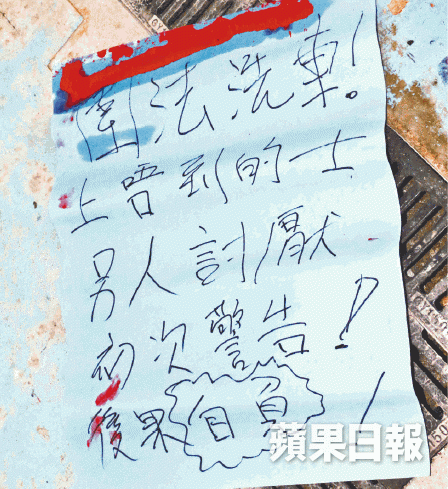 圍法洗車!
上唔到的士
另人討厭
初次警告!
後果自負!
蘋果日報